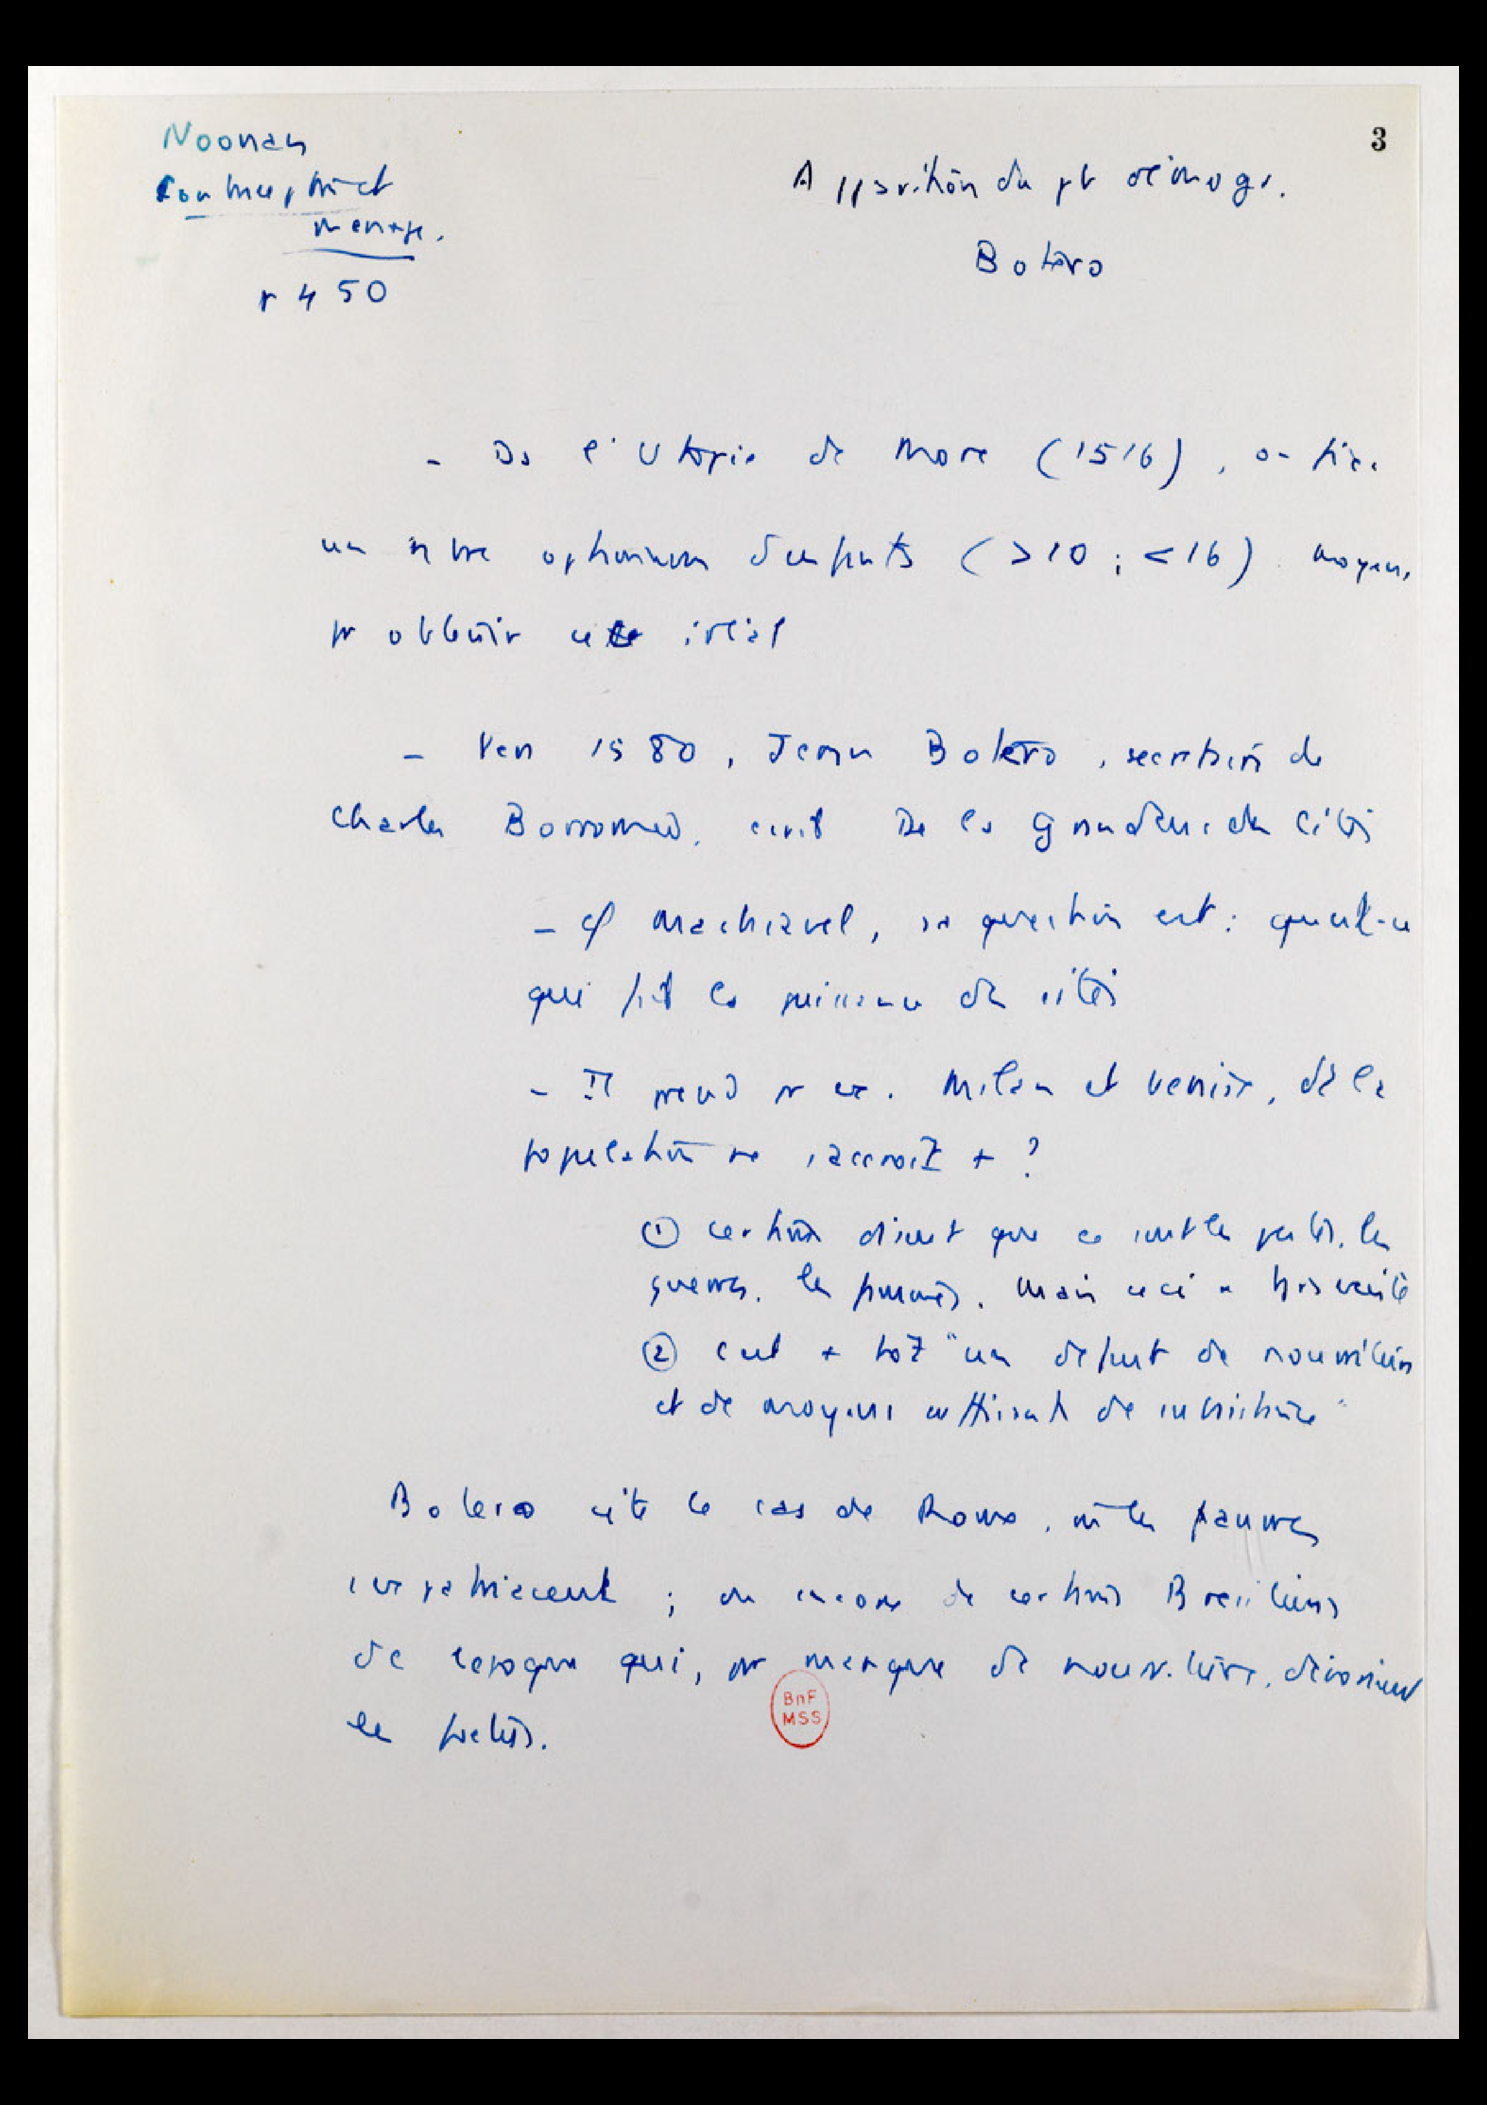 3
Noonan
Contraception et
mariage.
p 450
Apparition du pb démogr.
Botero
- Ds l'Utopie de More (1516), on fixe
un nbre optimum d'enfants (>10 ; <16) moyens
pr obtenir cet idéal
- Vers 1580, Jean Botero, secrétaire de
Charles Borromée, écrit De la grandeur des cités
- cf Machiavel, sa question est : qu'est-ce
qui fait la puissance des cités
- Il prend pr ex. Milan et Venise, où la
population ne s'accroît + ?
① certains disent que ce sont les pestes, les
guerres, les famines. Mais ceci a tjrs existé
② c'est + tôt "un défaut de nourriture
et de moyens suffisants de subsistance"
Botero cite le cas de Rome, où les pauvres
s'expatriaient ; ou encore de certains Brésiliens
de l'époque qui, pr manque de nourriture, dévoraient
les
BnF
MSS